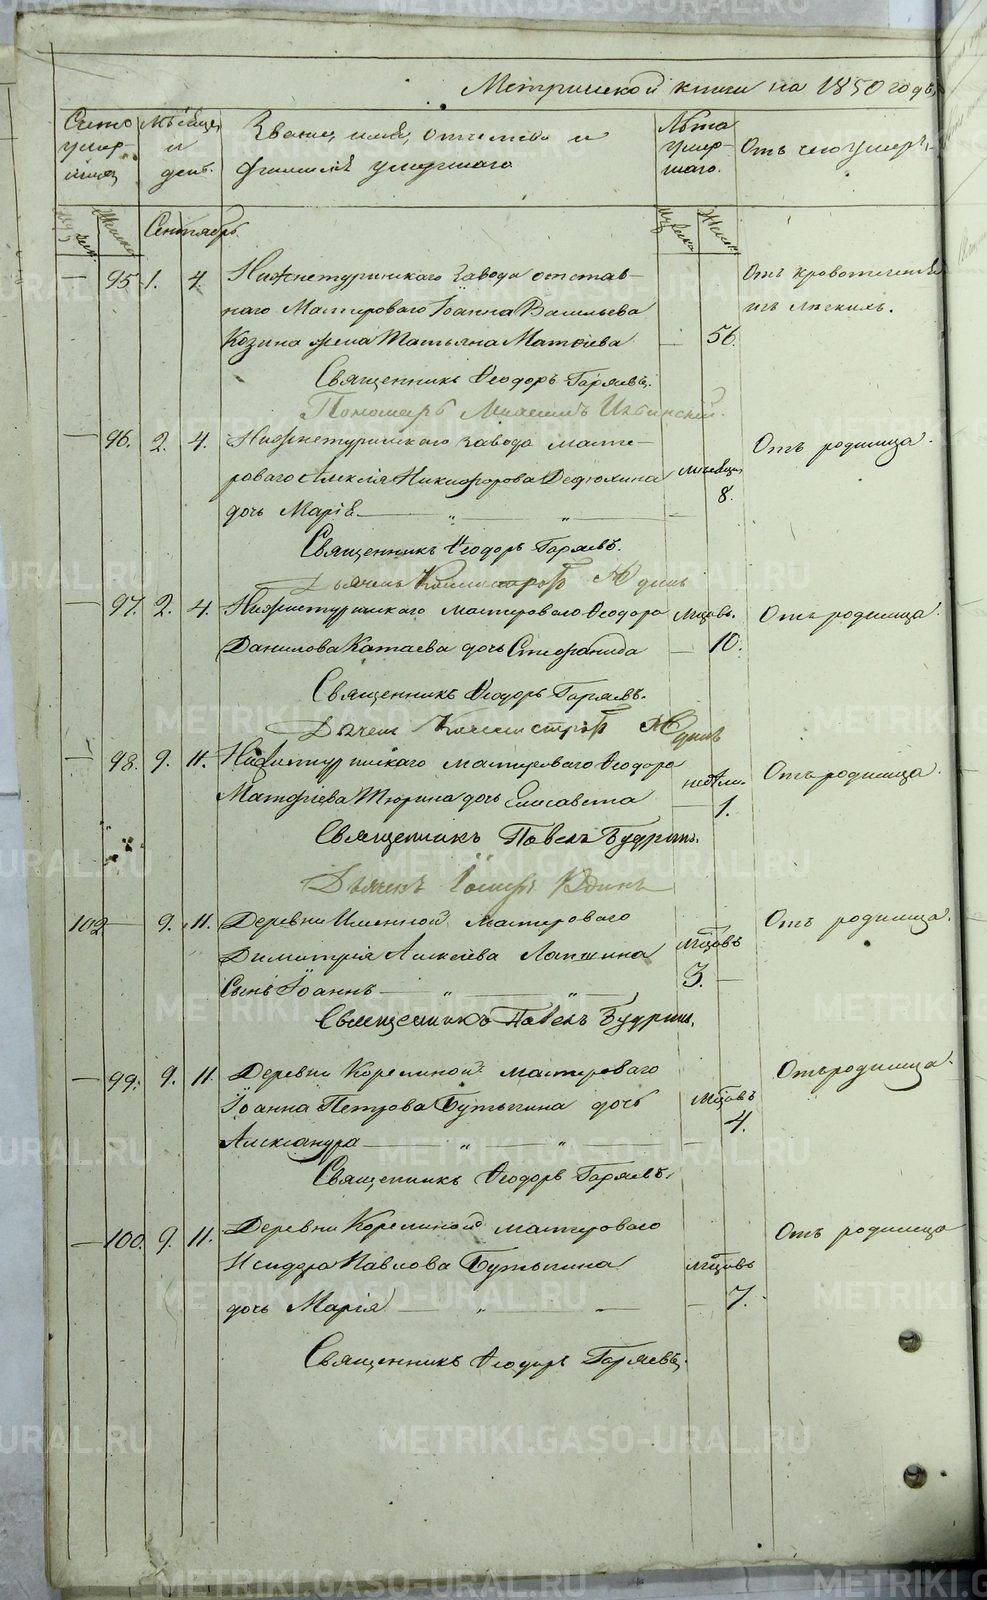 Метрической книги на 1850 годъ,
Счетъ умер- шихъ
Мѣсяцъ и день.
Званіе, имя, отчество и фамилія умершаго
Лѣта умер- шаго.
Отъ чего умеръ
Муж. Женска
Сентябрь
Мужеска Женска
— 95 1. 4. Нижнетуринскаго завода отстав-
наго Мастероваго Іоанна Васильева
Козина жена Татьяна Матѳіева — 56.
Отъ кровотеченія
Священникъ Ѳеодоръ Гаряевъ.
Пономарь Михаилъ
— 96. 2. 4. Нижнетуринскаго завода масте-
роваго Алексія Никифорова Дедюхина мѣсяцъ
дочь Марія — „ — „ — 8.
Отъ родимца.
Священникъ Ѳеодоръ Гаряевъ.
Дьячекъ
— 97. 2. 4. Нижнетуринскаго мастероваго Ѳеодора мѣцовъ.
Данилова Катаева дочь Стефанида — 10.
Отъ родимца.
Священникъ Ѳеодоръ Гаряевъ.
Дьячекъ
— 98. 9. 11. Нижнетуринскаго мастероваго Ѳеодора
Матфіева Тюрина дочь Елисавета недѣли. 1.
Отъ родимца.
Священникъ Павелъ Будринъ.
Дьячекъ
102 — 9. 11. Деревни Именной Мастероваго
Димитрія Алексіева Лапшина мѣцовъ
Сынъ Іоаннъ — „ — „ — 3. —
Отъ родимца.
Священникъ Павелъ Будринъ.
— 99. 9. 11. Деревни Корелиной мастероваго
Іоанна Петрова Бутыгина дочь мѣцовъ
Александра — „ — „ — 4.
Отъ родимца.
Священникъ Ѳеодоръ Гаряевъ.
— 100. 9. 11. Деревни Корелиной мастероваго
Исидора Павлова Бутыгина мѣцовъ
дочь Марія — „ — — 7.
Отъ родимца
Священникъ Ѳеодоръ Гаряевъ.
METRIKI.GASO-URAL.RU